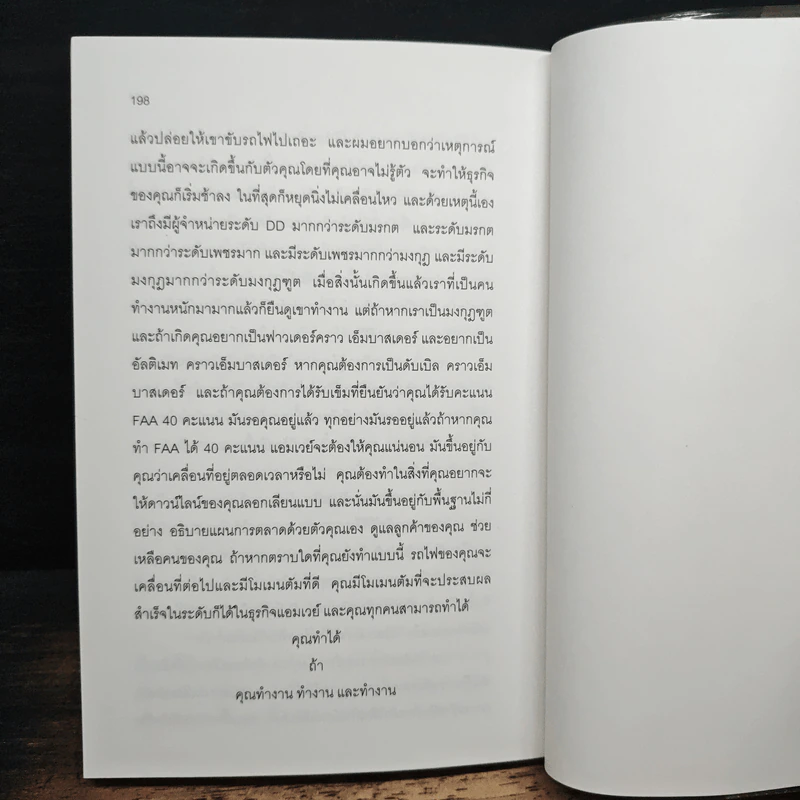 198
แล้วปล่อยให้เขาขับรถไฟไปเถอะ และผมอยากบอกว่าเหตุการณ์
แบบนี้อาจจะเกิดขึ้นกับตัวคุณโดยที่คุณอาจไม่รู้ตัว จะทำให้ธุรกิจ
ของคุณก็เริ่มช้าลง ในที่สุดก็หยุดนิ่งไม่เคลื่อนไหว และด้วยเหตุนี้เอง
เราถึงมีผู้จำหน่ายระดับ DD มากกว่าระดับมรกต และระดับมรกต
มากกว่าระดับเพชรมาก และมีระดับเพชรมากกว่ามงกุฎ และมีระดับ
มงกุฎมากกว่าระดับมงกุฎทูต เมื่อสิ่งนั้นเกิดขึ้นแล้วเราที่เป็นคน
ทำงานหนักมามากแล้วก็ยืนดูเขาทำงาน แต่ถ้าหากเราเป็นมงกุฎทูต
และถ้าเกิดคุณอยากเป็นฟาวเดอร์คราว เอ็มบาสเดอร์ และอยากเป็น
อัลติเมท คราวเอ็มบาสเดอร์ หากคุณต้องการเป็นดับเบิล คราวเอ็ม
บาสเดอร์ และถ้าคุณต้องการได้รับเข็มที่ยืนยันว่าคุณได้รับคะแนน
FAA 40 คะแนน มันรอคุณอยู่แล้ว ทุกอย่างมันรออยู่แล้วถ้าหากคุณ
ทำ FAA ได้ 40 คะแนน แอมเวย์จะต้องให้คุณแน่นอน มันขึ้นอยู่กับ
คุณว่าเคลื่อนที่อยู่ตลอดเวลาหรือไม่ คุณต้องทำในสิ่งที่คุณอยากจะ
ให้ดาวน์ไลน์ของคุณลอกเลียนแบบ และนั่นมันขึ้นอยู่กับพื้นฐานไม่กี่
อย่าง อธิบายแผนการตลาดด้วยตัวคุณเอง ดูแลลูกค้าของคุณ ช่วย
เหลือคนของคุณ ถ้าหากตราบใดที่คุณยังทำแบบนี้ รถไฟของคุณจะ
เคลื่อนที่ต่อไปและมีโมเมนตัมที่ดี คุณมีโมเมนตัมที่จะประสบผล
สำเร็จในระดับก็ได้ในธุรกิจแอมเวย์ และคุณทุกคนสามารถทำได้
คุณทำได้
ถ้า
คุณทำงาน ทำงาน และทำงาน